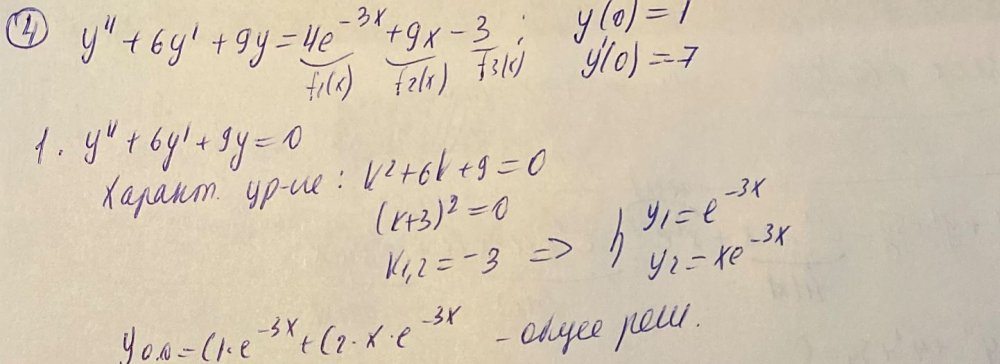 ④ y'' + 6y' + 9y = 4e^{-3x} + 9x - 3 ; y(0) = 1
f₁(x) f₂(x) f₃(x) y'(0) = -7
1. y'' + 6y' + 9y = 0
Характ. ур-ие: k² + 6k + 9 = 0
(k+3)² = 0
k₁,₂ = -3 => } y₁ = e^{-3x}
y₂ = xe^{-3x}
y₀.₀ = C₁·e^{-3x} + C₂·x·e^{-3x} - общее реш.